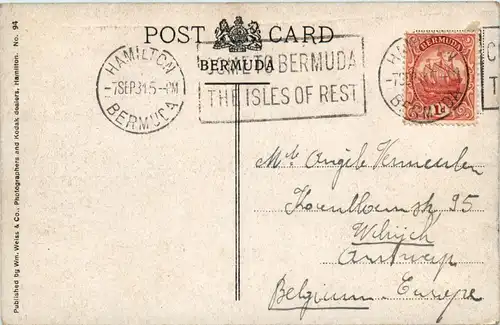 POST CARD
BERMUDA
HAMILTON
-7SEP.31.5-PM
BERMUDA
COME TO BERMUDA
THE ISLES OF REST
BERMUDA
HA
-7SE
BERMUDA
C
T
Published by Wm. Weiss & Co., Photographers and Kodak dealers, Hamilton. No. 94
Angèle Vermeulen
25
Wilrijck
Antwerp
Belgium. Europe